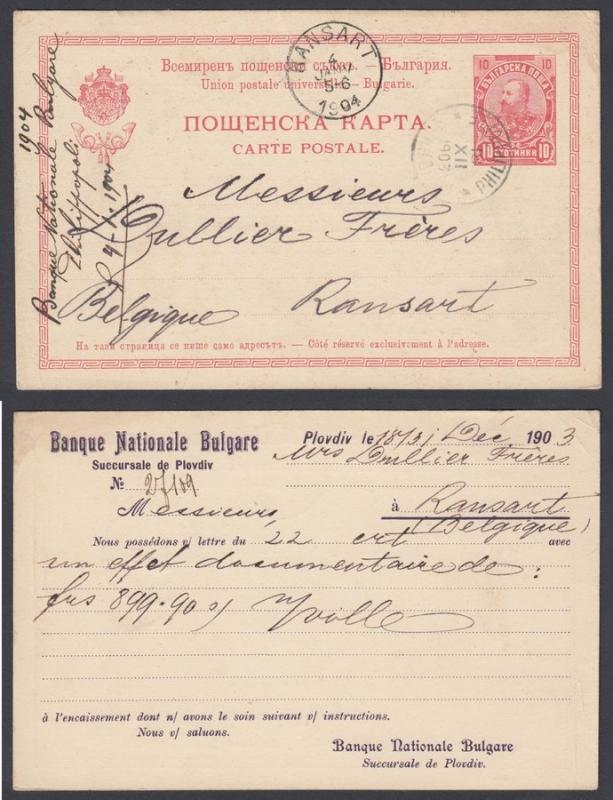 Всемиренъ пощенски съюзъ. — България.
Union postale universelle. — Bulgarie.
ПОЩЕНСКА КАРТА.
CARTE POSTALE.
RANSART
4
JANV
5-6
1904
10 10
БЪЛГАРСКА ПОЩА
10 СТОТИНКИ 10
XII
1903
PHILIPP
1904
Banque Nationale Bulgare
Philippopoli
4-1-1904
Messieurs
Dullier Frères
Ransart
Belgique
На тази страница се пише само адресътъ. — Côté réservé exclusivement à l'adresse.
Banque Nationale Bulgare
Succursale de Plovdiv
Plovdiv le 18/31 Déc. 1903
Mrs Dullier Frères
№ 27109
à Ransart
(Belgique)
Messieurs,
Nous possédons v/ lettre du 22 crt avec
un effet documentaire de:
frs 899.90 s/
à l'encaissement dont n/ avons le soin suivant v/ instructions.
Nous v/ saluons.
Banque Nationale Bulgare
Succursale de Plovdiv.